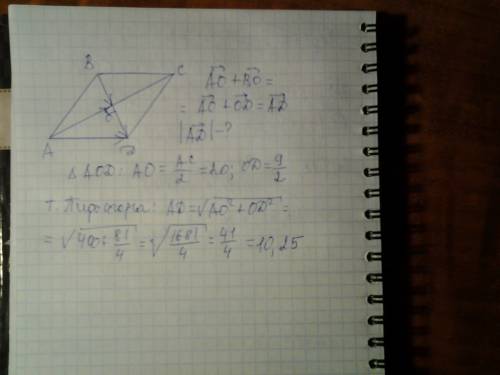 B C
A D
O
AO + BO =
= AO + OD = AD
|AD| - ?
△ AOD: AO = AC/2 = 20; OD = 9/2
т. Пифагора: AD = √AO² + OD² =
= √400 + 81/4 = √1681/4 = 41/4 = 10,25